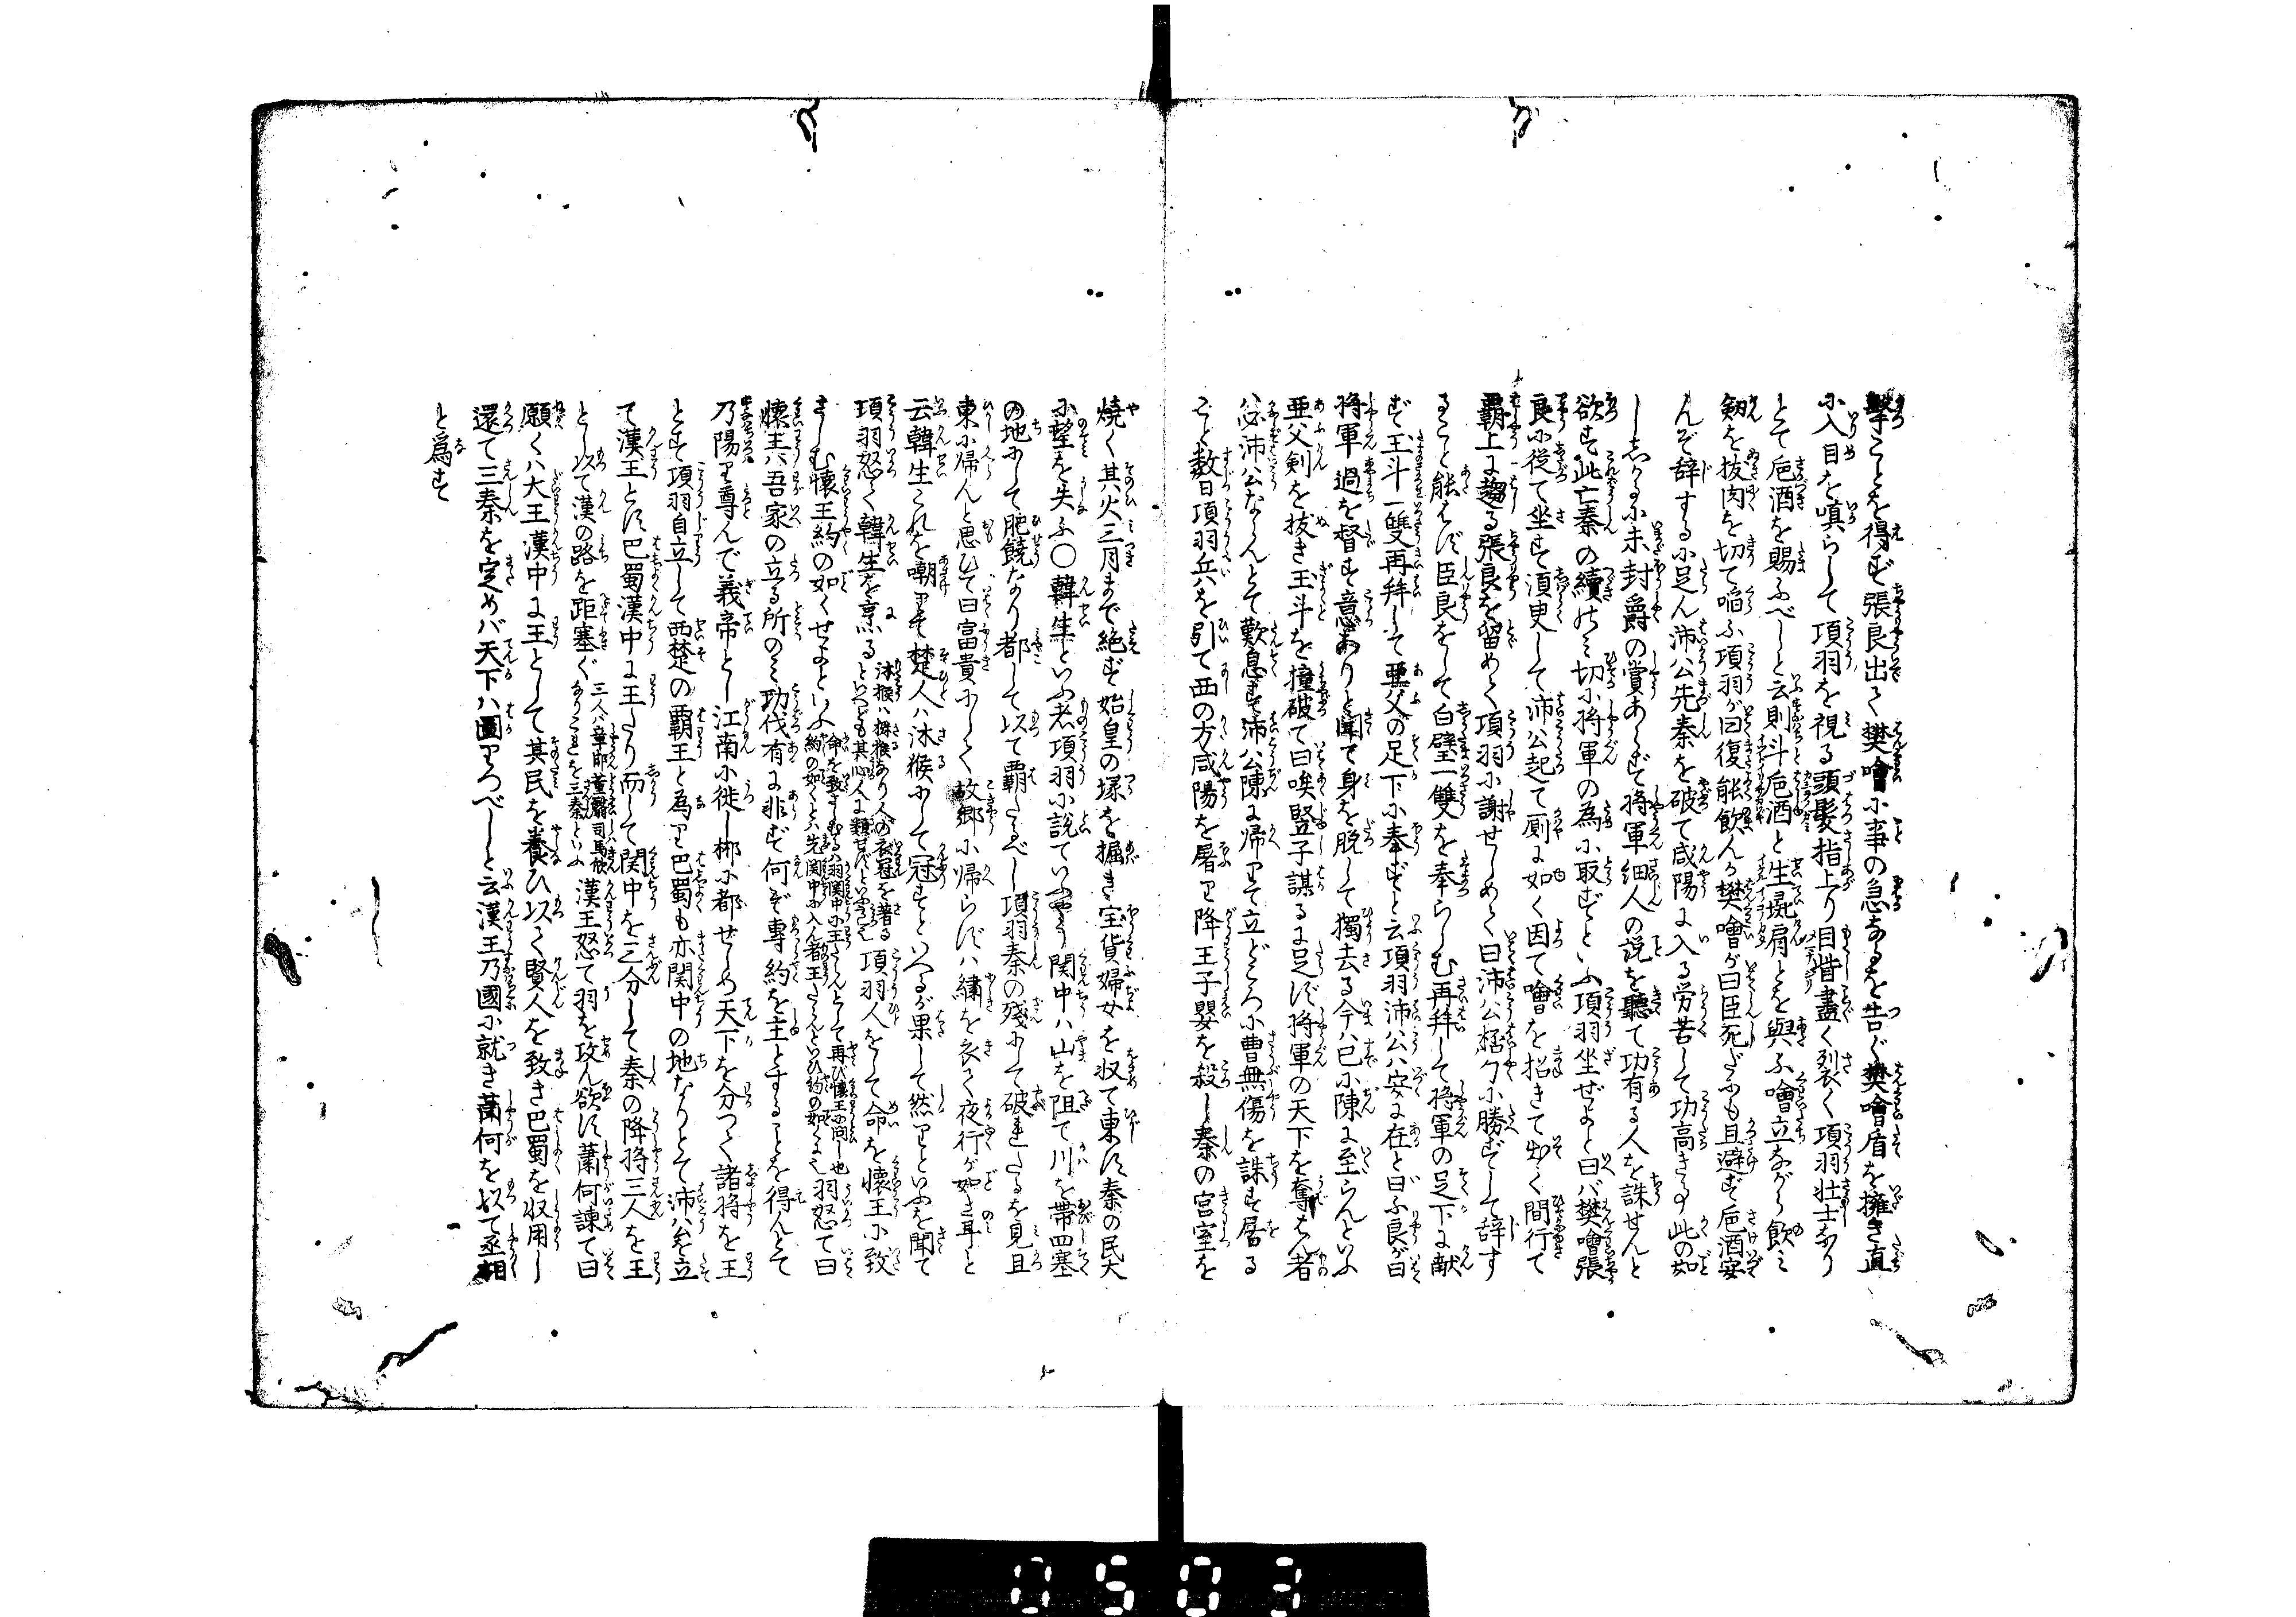 撃ことを得ず張良出て樊噲に事の急なるを告ぐ樊噲盾を擁き直
に入目を嗔らして項羽を視る頭髪指上り目眥盡く裂く項羽壮士なり
とて巵酒を賜ふべしと云則斗巵酒と生彘肩とを與ふ噲立ながら飲ミ
剱を抜肉を切て啗ふ項羽が曰復能飲んか樊噲が曰臣死だも且避ず巵酒安
んぞ辞するに足ん沛公先秦を破て咸陽に入る労苦して功高き事此の如
ししかるに未封爵の賞あらず将軍細人の説を聴て功有る人を誅せんと
欲す此亡秦の續のミ切に将軍の為に取ずといふ項羽坐せよと曰バ樊噲張
良に従て坐す須臾して沛公起て厠に如く因て噲を招きて出て間行て
覇上に趨る張良を留めて項羽に謝せしめて曰沛公桮勺に勝ずして辞す
ること能はず臣良をして白璧一雙を奉らしむ再拜して将軍の足下に献
ず玉斗一雙再拜して亜父の足下に奉ずと云項羽沛公ハ安に在と曰ふ良が曰
将軍過を督す意ありと聞て身を脱して獨去る今ハ已に陳に至らんといふ
亜父剣を抜き玉斗を撞破て曰唉豎子謀るに足ず将軍の天下を奪はん者
ハ必沛公ならんとて歎息す沛公陳に帰りて立どころに曹無傷を誅す居る
こと数日項羽兵を引て西の方咸陽を屠り降王子嬰を殺し秦の宮室を
焼く其火三月まで絶ず始皇の塚を掘き宝貨婦女を収て東す秦の民大
に望を失ふ〇韓生といふ者項羽に説ていふやう関中ハ山を阻て川を帯四塞
の地にして肥饒なり都して以て覇たるべし項羽秦の殘にて破れたるを見且
東に帰んと思ひて曰富貴にして故郷に帰らずハ繍を衣て夜行が如き耳と
云韓生これを嘲りて楚人ハ沐猴にして冠すといへるが果して然りといふを聞て
項羽怒て韓生を烹る
沐猴ハ獼猴なり人の衣冠を著る
といへども其心人に類せずといふこと也
項羽人をして命を懐王に致
さしむ懐王約の如くせよといふ
命を致さしむるハ羽関中に王たらんとて再び懐王に問し也
約の如くとハ先関中に入ん者王たらんといひし約の如くと也
羽怒て曰
懐王ハ吾家の立る所のミ功伐有に非ず何ぞ専約を主とすることを得んとて
乃陽り尊んで義帝とし江南に徙し郴に都せしめ天下を分つて諸将を王
とす項羽自立して西楚の覇王と為り巴蜀も亦関中の地なりとて沛公を立
て漢王とす巴蜀漢中に王たり而して関中を三分して秦の降将三人を王
とし以て漢の路を距塞ぐ
三人ハ章邯董翳司馬欣
なりこれを三秦といふ
漢王怒て羽を攻ん欲す蕭何諫て曰
願くハ大王漢中に王として其民を養ひ以て賢人を致き巴蜀を収用し
還て三秦を定めバ天下ハ圖りつべしと云漢王乃國に就き蕭何を以て丞相
と爲す
0503